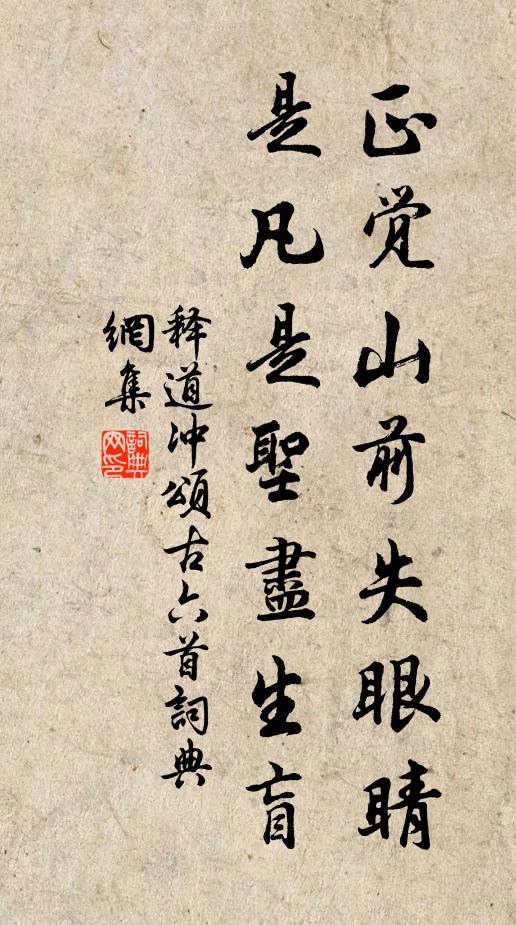 正觉山前失眼睛
是凡是聖盡生盲
释道冲頌古六首詞典
網集
詞典
网印